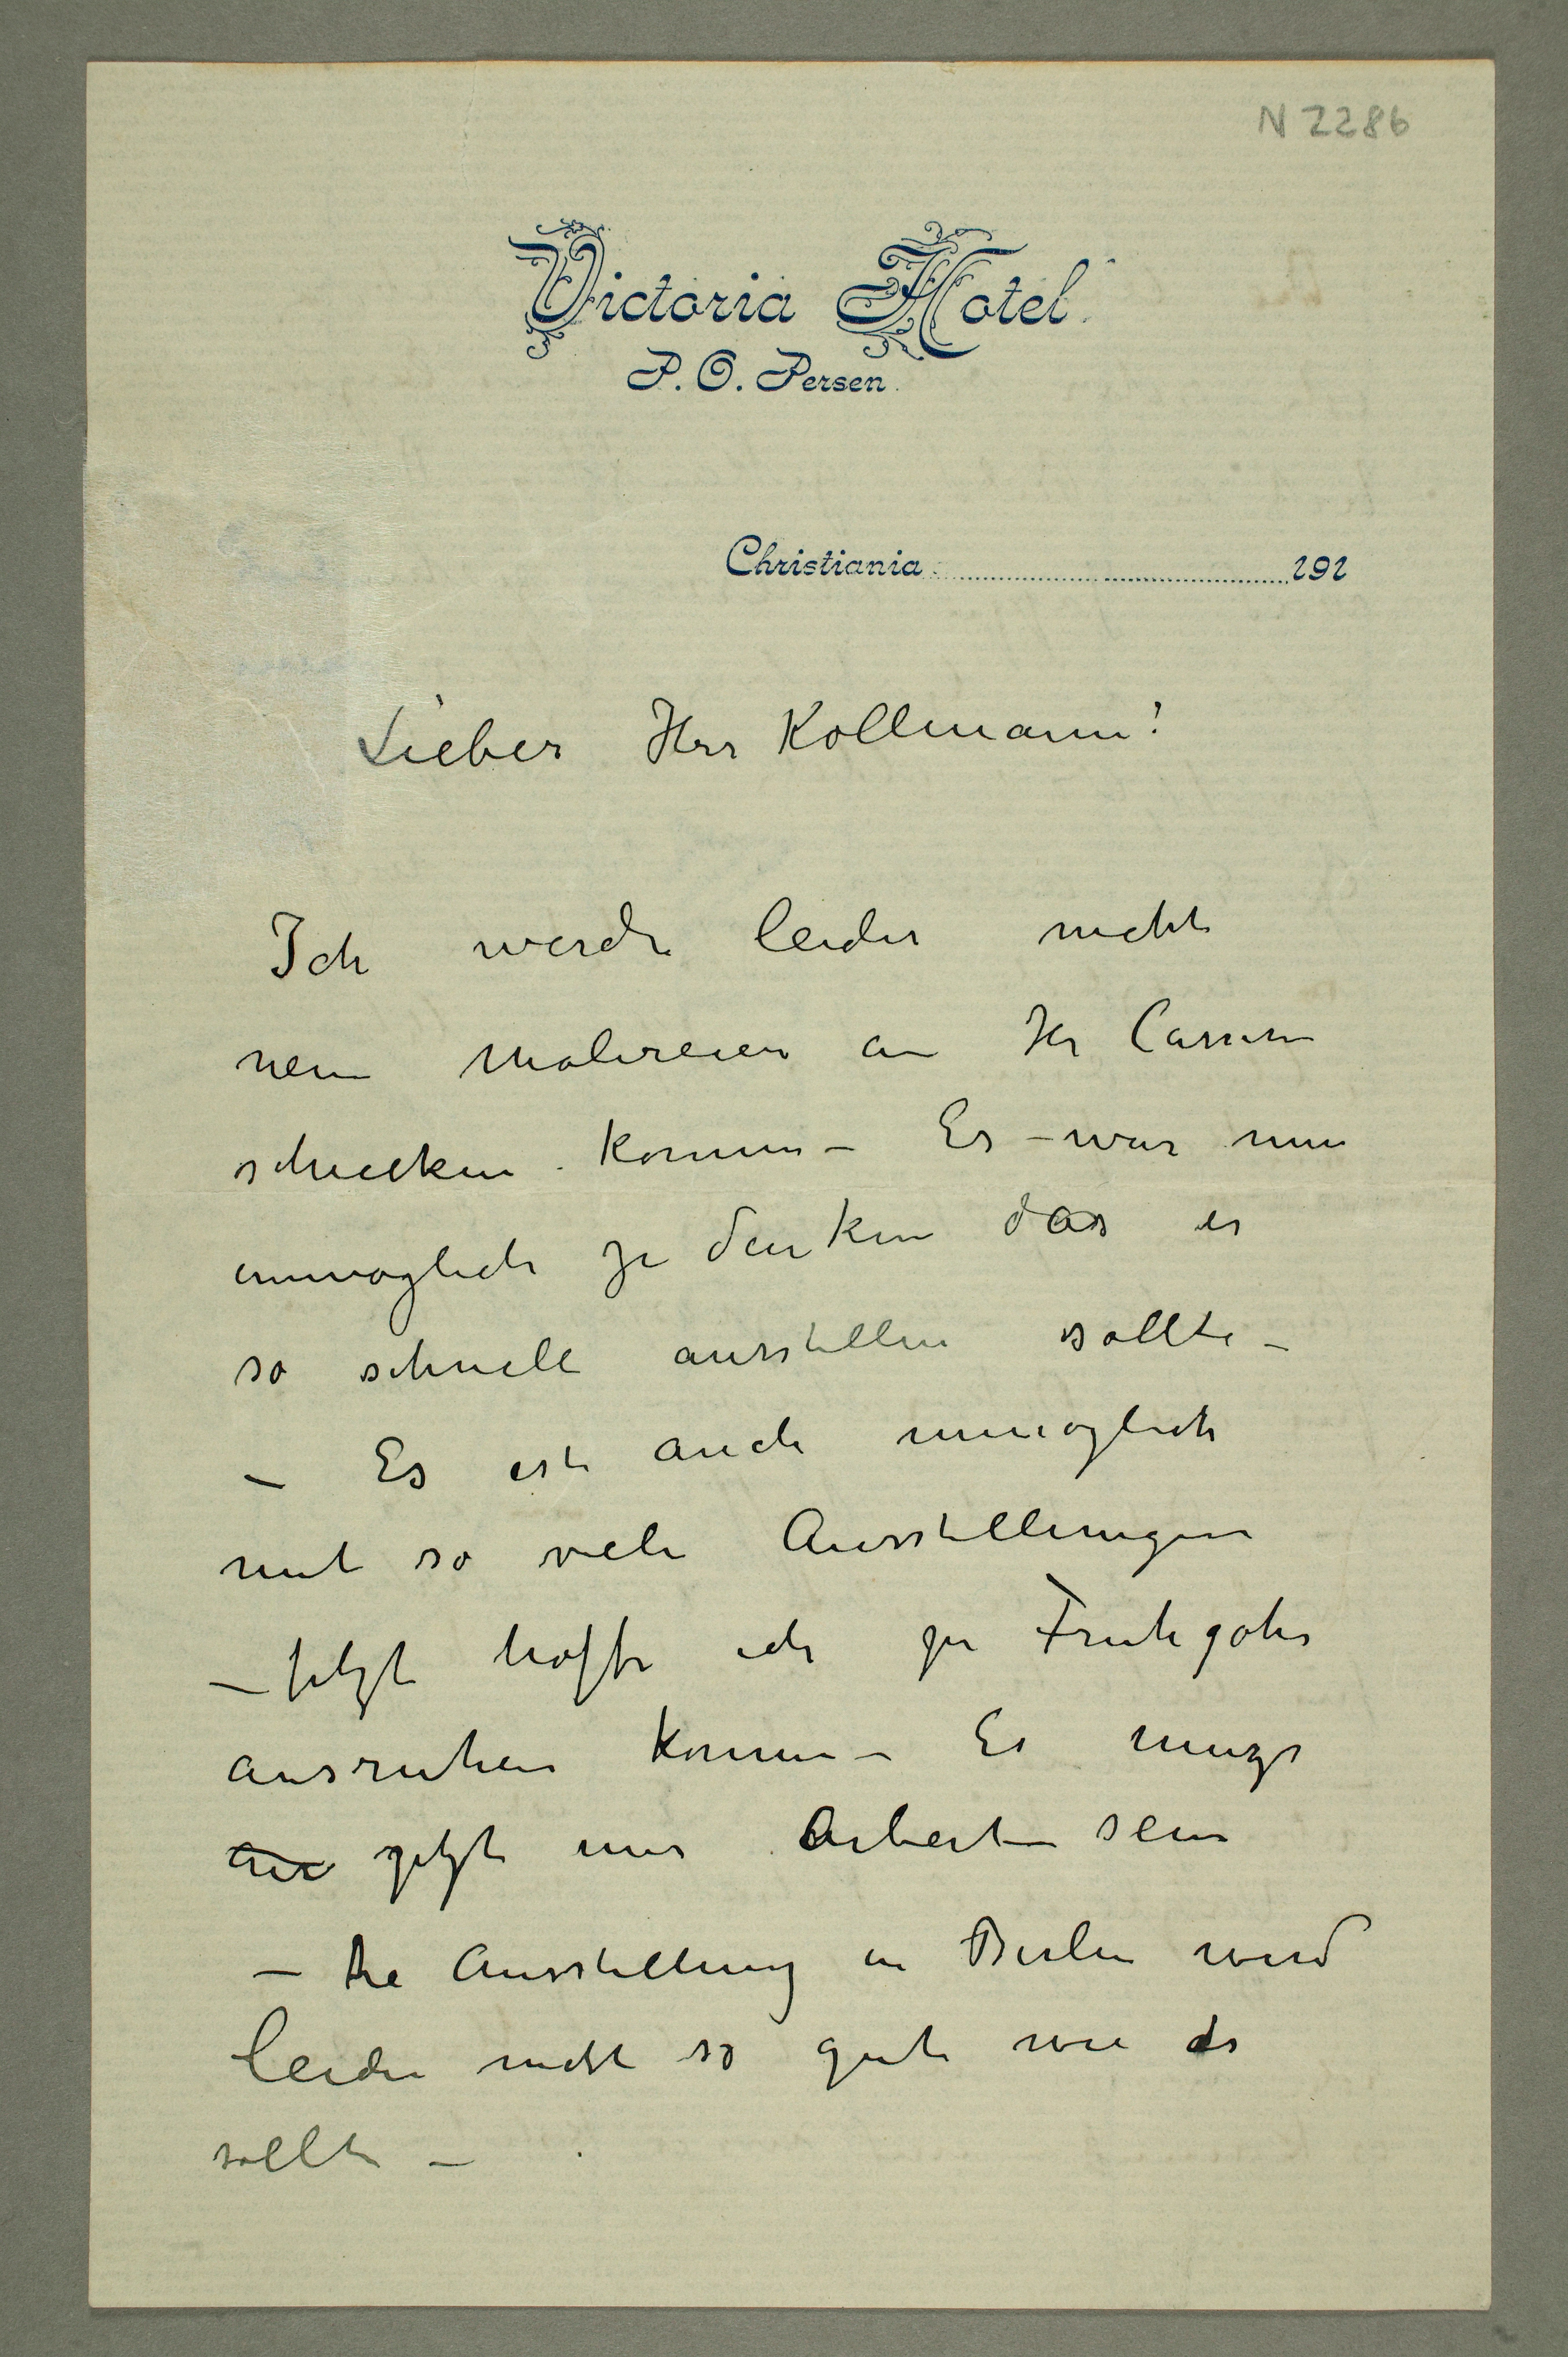 N 2286
Victoria Hotel.
P. O. Persen.
Christiania 191
Lieber Herr Kollmann!
Ich werde leider nicht
neue Malereien an Hr Cassirer
schicken können – Es war mir
unmöglich zu denken das er
so schnell ausstellen sollte –
– Es ist auch unmöglich
mit so viele Ausstellungen
– jetzt hoffe ich zu Frühjahr
ausruhen können – Es muzs
jetzt nur Arbeit sein
– Die Ausstellung in Berlin wird
leider nicht so gut wie es
sollte –